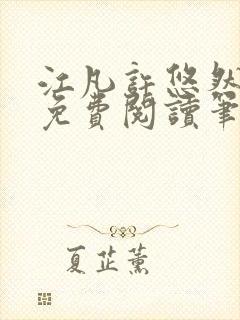 江凡許悠然
免費閱讀筆
夏芷薰